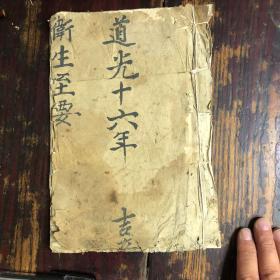 道光十六年 吉
衛生至要